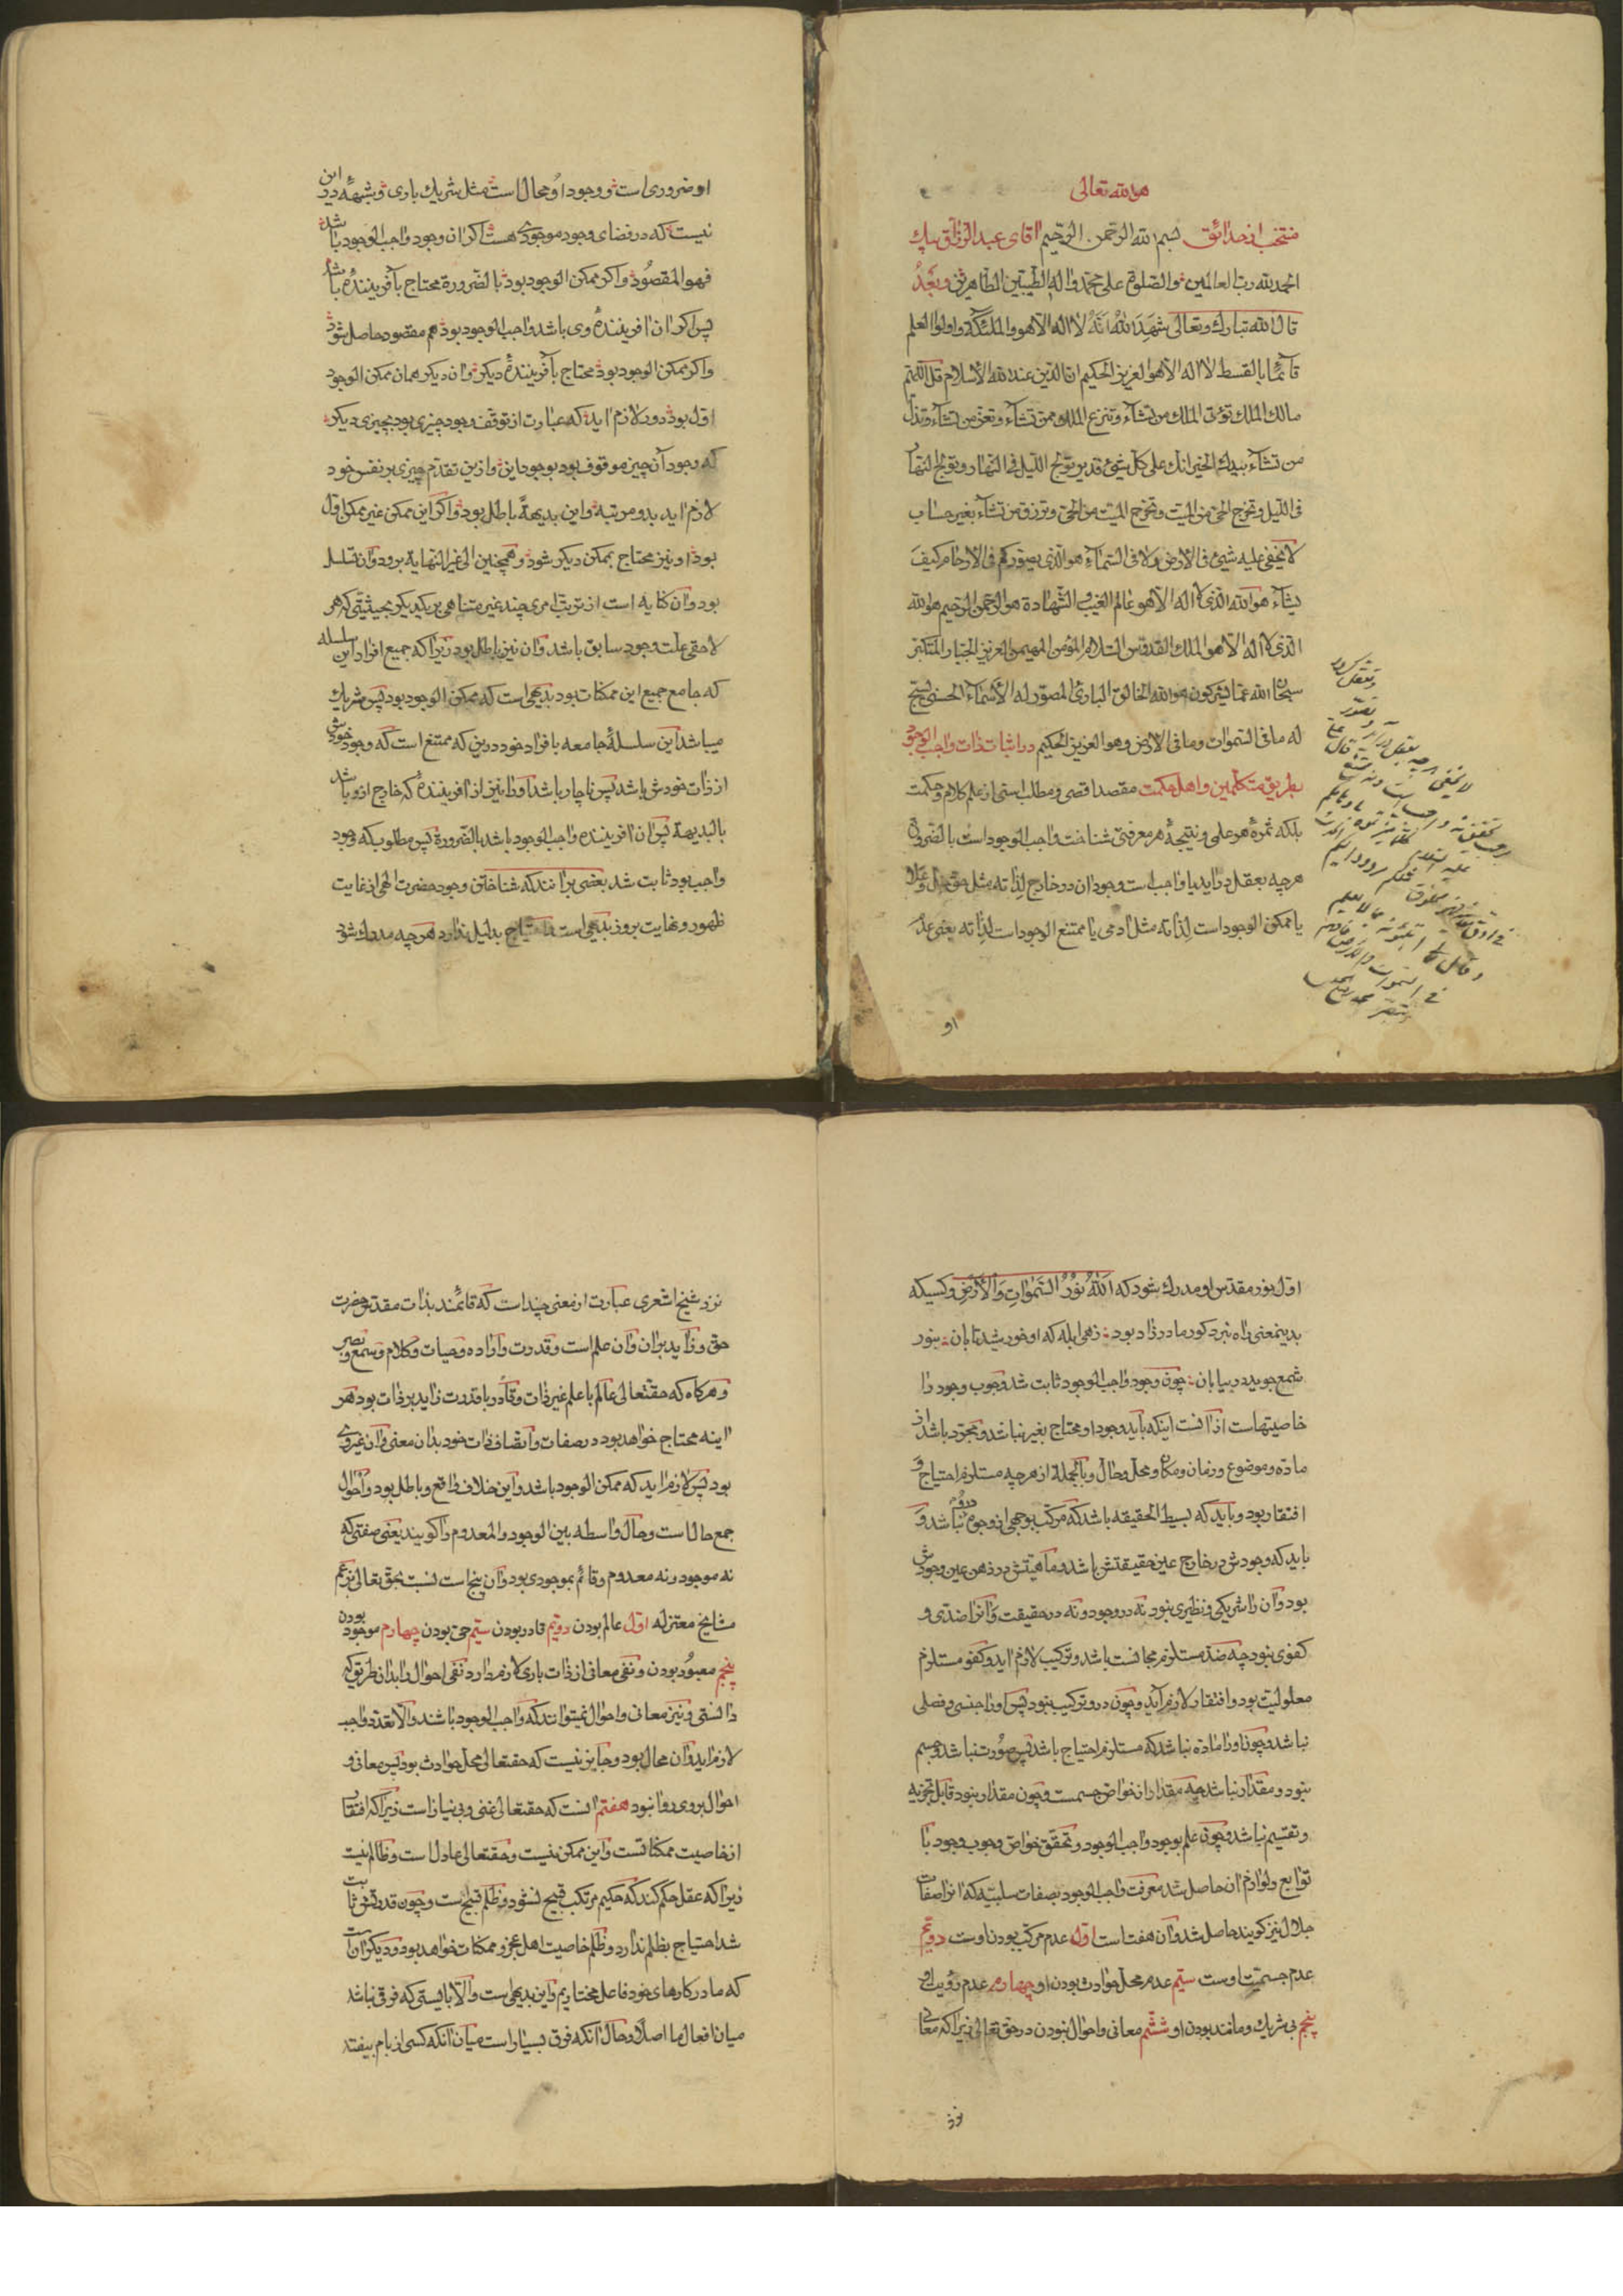 هو الله تعالی
منتخب از حدائق بسم الله الرحمن الرحیم آقای عبد الرزاق بیك
الحمد لله رب العالمین والصلوة علی محمد واله الطیبین الطاهرین وبعد
قال الله تبارك وتعالی شهد الله انه لا اله الا هو والملئكة واولوا العلم
قآئما بالقسط لا اله الا هو العزیز الحكیم ان الدین عند الله الاسلام قل اللهم
مالك الملك تؤتی الملك من تشآء وتنزع الملك ممن تشآء وتعز من تشآء وتذل
من تشآء بیدك الخیر انك علی كل شیئ قدیر تولج اللیل فی النهار وتولج النهار
فی اللیل وتخرج الحی من المیت وتخرج المیت من الحی وترزق من تشآء بغیر حساب
لا یخفی علیه شیئ فی الارض ولا فی السمآء هو الذی یصورکم فی الارحام كیف
یشآء هو الله الذی لا اله الا هو عالم الغیب والشهادة هو الرحمن الرحیم هو الله
الذی لا اله الا هو الملك القدوس السلام المؤمن المهیمن العزیز الجبار المتكبر
سبحان الله عما یشركون هو الله الخالق البارئ المصور له الاسمآء الحسنی یسبح
له ما فی السموات وما فی الارض وهو العزیز الحكیم در اثبات ذات واجب الوجود
بطریق متكلمین واهل حكمت مقصد اقصی ومطلب اسنی از علم كلام وحكمت
بلكه ثمرهٔ هر علمی ونتیجهٔ هر معرفتی شناخت واجب الوجود است بالضروره
هر چه بعقل در اید یا واجب است وجود ان در خارج لذاته مثل حق جل وعلا
یا ممكن الوجود است لذاته مثل ادمی یا ممتنع الوجود است لذاته یعنی عدم
او
او ضروری است ووجود او محال است مثل شریك باری وشبهه در این
نیست كه در فضای وجود موجودی هست اكر ان وجود واجب الوجود باشد
فهو المقصود واكر ممكن الوجود بود بالضرورة محتاج بآفریننده باشد
پس اكر ان افرینندهٔ وی باشد واجب الوجود بود هم مقصود حاصل شود
واكر ممكن الوجود بود محتاج بآفرینندهٔ دیكر وان دیكر همان ممكن الوجود
اول بود دور لازم اید كه عبارت از توقف وجود چیزی بود بچیزی دیكر
كه وجود آن چیز موقوف بود بوجود این وازین تقدم چیزی بر نفس خود
لازم اید بدو مرتبه واین بدیههً باطل بود واكر این ممكن غیر ممكن اول
بود او نیز محتاج بممكن دیكر شود وهمچنین الی غیر النهایه برود وان تسلسل
بود وان كنایه است از ترتب امری چند غیر متناهی بر یكدیكر بحیثیتی كه هر
لاحقی علت وجود سابق باشد وان نیز باطل بود زیرا كه جمیع افراد این سلسله
كه جامع جمیع این ممكنات بود بدیهی است كه ممكن الوجود بود پس شریك
میباشد این سلسلهٔ جامعه بافراد خود درین كه ممتنع است كه وجود خودش
از ذات خودش باشد پس ناچار باشد اورا نیز از افرینندهٔ كه خارج ازو باشد
بالبدیهة پس ان افریننده واجب الوجود باشد بالضرورة پس مطلوب كه وجود
واجب بود ثابت شد بعضی بر انند كه شناختن وجود حضرت الهی از غایت
ظهور ونهایت بروز بدیهی است واحتیاج بدلیل ندارد هر چه مدرك شود
اول نور مقدس او مدرك شود كه الله نور السموات والارض وكسیكه
بدینمعنی راه نبرد كور مادر زاد بود زهی ابله كه او خورشید تابان بنور
شمع جوید در بیابان چون وجود واجب الوجود ثابت شد وجوب وجود را
خاصیتهاست از انست اینكه باید وجود او محتاج بغیر نباشد ومجرد باشد از
ماده وموضوع وزمان ومكان ومحل وحال وبالجملة از هر چه مستلزم احتیاج و
افتقار بود وباید كه بسیط الحقیقه باشد كه مركب بوجهی از وجوه درو نباشد و
باید كه وجودش در خارج عین حقیقتش باشد وماهیتش در ذهن عین وجودش
بود وان را شریكی ونظیری نبود نه در وجود ونه در حقیقت وانرا ضدی و
كفوی نبود چه ضد مستلزم مجانست باشد وتركیب لازم اید وكفو مستلزم
معلولیت بود وافتقار لازم آید وچون درو تركیب نبود پس اورا جنسی وفصلی
نباشد وچون اورا ماده نباشد كه مستلزم احتیاج باشد پس صورت نباشد وجسم
نبود ومقدار نباشد چه مقدار از خواص جسمست وچون مقدار نبود قابل تجزیه
وتقسیم نباشد وچون علم بوجود واجب الوجود وتحقق خواص وجوب وجود با
توابع ولوازم ان حاصل شد معرفت واجب الوجود بصفات سلبیه كه انرا صفات
جلال نیز كویند حاصل شد وان هفت است اول عدم مركب بودن اوست دویم
عدم جسمیت اوست سیم عدم محل حوادث بودن او چهارم عدم رؤیت او
پنجم بی شریك ومانند بودن او ششم معانی واحوال نبودن در حق تعالی زیرا كه معانی
نزد
نزد شیخ اشعری عبارت از معنی چند است كه قائمند بذات مقدس حضرت
حق وزاید بر ان وان علم است وقدرت واراده وحیات وكلام وسمع وبصر
وهركاه كه حقتعالی عالم با علم غیر ذات وقادر با قدرت زاید بر ذات بود هر
اینه محتاج خواهد بود در صفات واتصاف ذات خود بدان معنی وان غیر وی
بود پس لازم اید كه ممكن الوجود باشد واین خلاف واقع وباطل بود واحوال
جمع حال است وحال واسطه بین الوجود والمعدوم را كویند یعنی صفتی كه
نه موجود ونه معدوم وقائم بموجودی بود وان پنج است نسبت بحق تعالی بزعم
مشایخ معتزله اول عالم بودن دویم قادر بودن سیم حی بودن چهارم موجود بودن
پنجم معبود بودن ونفی معانی از ذات باری لازم دارد نفی احوال را بدان طریق كه
دانستی ونیز معانی واحوال نمیتوانند كه واجب الوجود باشند والا تعدد واجب
لازم اید وان محال بود وجایز نیست كه حقتعالی محل حوادث بود پس معانی و
احوال بروی روا نبود هفتم انست كه حقتعالی غنی وبی نیاز است زیرا كه افتقار
از خاصیت ممكناتست واین ممكن نیست وحقتعالی عادل است وظالم نیست
زیرا كه عقل حكم كند كه حكیم مرتكب قبیح نشود وظلم قبیح است وچون قدرتش ثابت
شد احتیاج بظلم ندارد وظلم خاصیت اهل عجز وممكنات خواهد بود ودیكر ان است
كه ما در كارهای خود فاعل مختاریم واین بدیهی است والا بایستی كه فرقی نباشد
میان افعال ما اصلا وحال انكه فرق بسیار است میان آنكه كسی از بام بیفتد